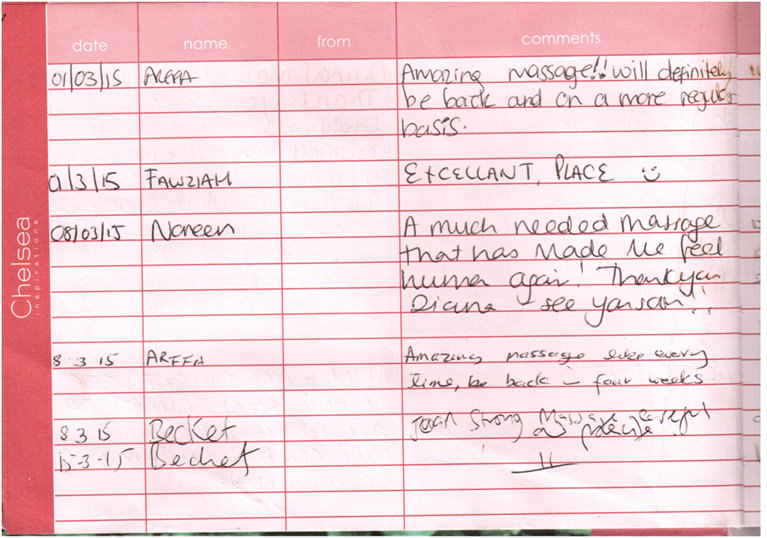 date name from comments
01/03/15 AREFA Amazing massage!! will definitely
be back and on a more regular
basis.
1/3/15 FAWZIAH EXCELLANT, PLACE
08/03/15 Noreen A much needed massage
that has Made Me feel
human again! Thankyou
Diana - see you soon!!
8 3 15 AREFA Amazing massage like every
time, be back in four weeks.
8 3 15 Becket Strong Massage
15-3-15 Becket "
Chelsea
inspirations